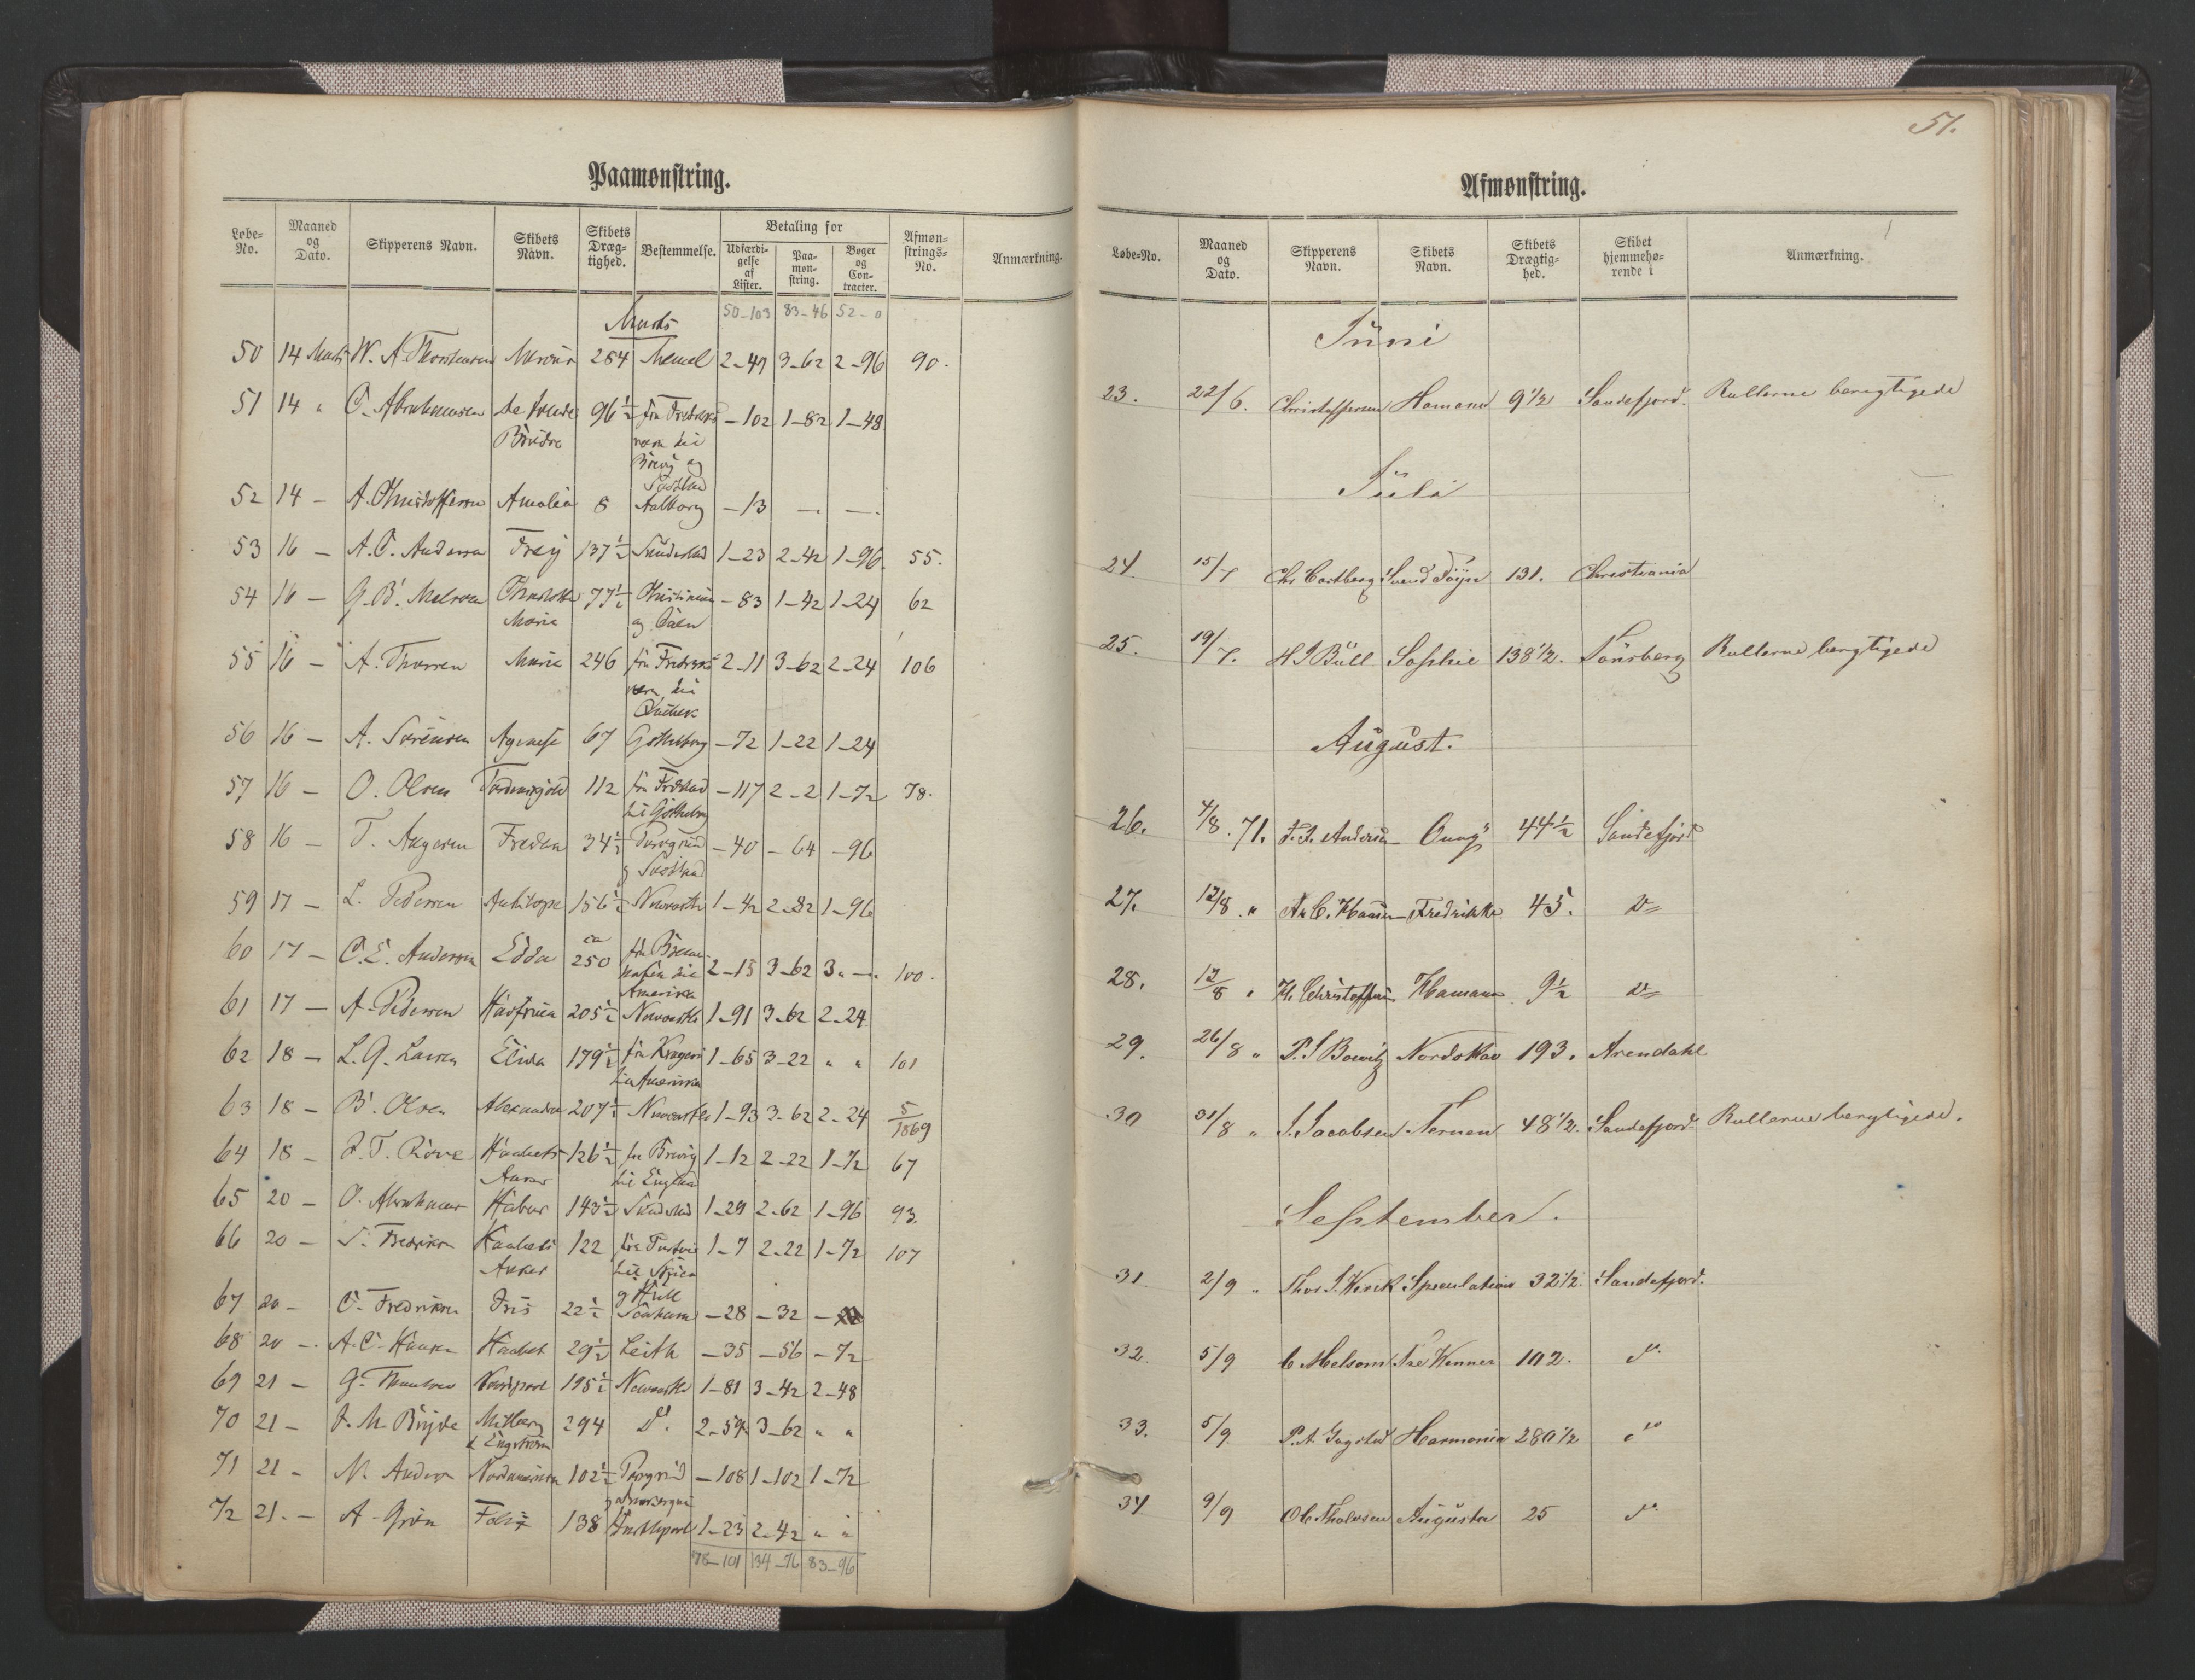 Paamønstring.
Løbe-No. Maaned og Dato. Skipperens Navn. Skibets Navn. Skibets Dræg-tighed. Bestemmelse. Betaling for Udfærdi-gelse af Lister. Paa-møn-string. Bøger og Con-tracter. Afmøn-strings-No. Anmærkning.
Marts 50-103 83-46 52-0
50 14 Marts W. A. Thorstensen Mercur 284 Memel 2-49 3-62 2-96 90.
51 14 " C. Abrahamsen De frende 96½ fra Fredriks -102 1-82 1-48
Brödre værn til
Brevig og
52 14 - A. Christoffersen Amalia 8 Aalborg -13 - -
53 16 - A. C. Andersen Freij 137½ Sunderland 1-23 2-42 1-96 55.
54 16 - G. B. Melsom Charlotte 77½ Christiania -83 1-42 1-24 62
Maria og
55 16 - A. Thorsen Maria 246 fra Fredriks 2-11 3-62 2-24 106
værn til
Quebek
56 16 - A. Sörensen 67 Gotheborg -72 1-22 1-24
57 16 - O. Olsen Tordenskjold 112 fra Fredriksstad -117 2-2 1-72 78.
til Gotheborg
58 16 - T. Aagesen Freden 34½ Porsgrund -40 -64 -96
59 17 - L. Pedersen Antilope 156½ Newcastle 1-42 2-82 1-96
60 17 - C. E. Andersen Edda ca 250 fra 2-15 3-62 3"-" 100.
til
Amerika
61 17 - A. Pedersen Havfruen 205½ Newcastle 1-91 3-62 2-24
62 18 - L. G. Larsen Elida 179½ fra Kragerö 1-65 3-22 " " 101
til Amerika
63 18 - B. Olsen Alexandra 207½ Newcastle 1-93 3-62 2-24 5/1869
64 18 - Röve Haabets 126½ fra Brevig 1-12 2-22 1-72 67
Anker til England
65 20 - O. Abrahamsen Habor 143½ Sunderland 1-29 2-62 1-96 93.
66 20 - Fredriksen Haabets 122 fra 1-7 2-22 1-72 107
Anker til
67 20 - C. Fredriksen Iris 22½ -28 -32 -
68 20 - A. C. Hansen Haabet 29½ Leith -35 -56 -72
69 21 - G. Nordpol 195½ Newcastle 1-81 3-42 2-48
70 21 - J. M. Bryde Mitberg 294 Do. 2-59 3-62 " "
& Engström
71 21 - N. Andersen Nordamerika 102½ Porsgrund -108 1-102 1-72
72 21. - A. Grön Felix 138 Hartlepool 1-23 2-42 " "
78-101 134-76 83-96
51.
Afmønstring.
Løbe-No. Maaned og Dato. Skipperens Navn. Skibets Navn. Skibets Drægtig-hed. Skibet hjemmehø-rende i Anmærkning.
Juni
23. 22/6. Christoffersen Hamand 9 1/2 Sandefjord. Rullerne berigtigede
Juli
24. 15/7 Chr Castberg Svend Föyn 131. Christiania
25. 19/7. H J Bull Sophie 138 1/2. Tönsberg Rullerne berigtigede
August.
26. 4/8. 71. Andersen 44½ Sandefjord
27. 12/8. " A. C. Hansen Fredrikke 45. Do
28. 12/8 " H. Christoffersen Hamand 9½ Do
29. 26/8 " P. J Bowitz Nordskov 193. Arendahl
30 31/8 " J. Jacobsen Ternen 48 1/2. Sandefjord Rullerne berigtigede.
September.
31. 2/9 " Thor J. Werck Speculation 32 1/2. Sandefjord.
32. 5/9 C Melsom Tre Venner 102. do.
33. 5/9 P. A. Jagsted Harmonia 280 1/2 do
34. 9/9 Ole Tholvsen Augusta 25 do